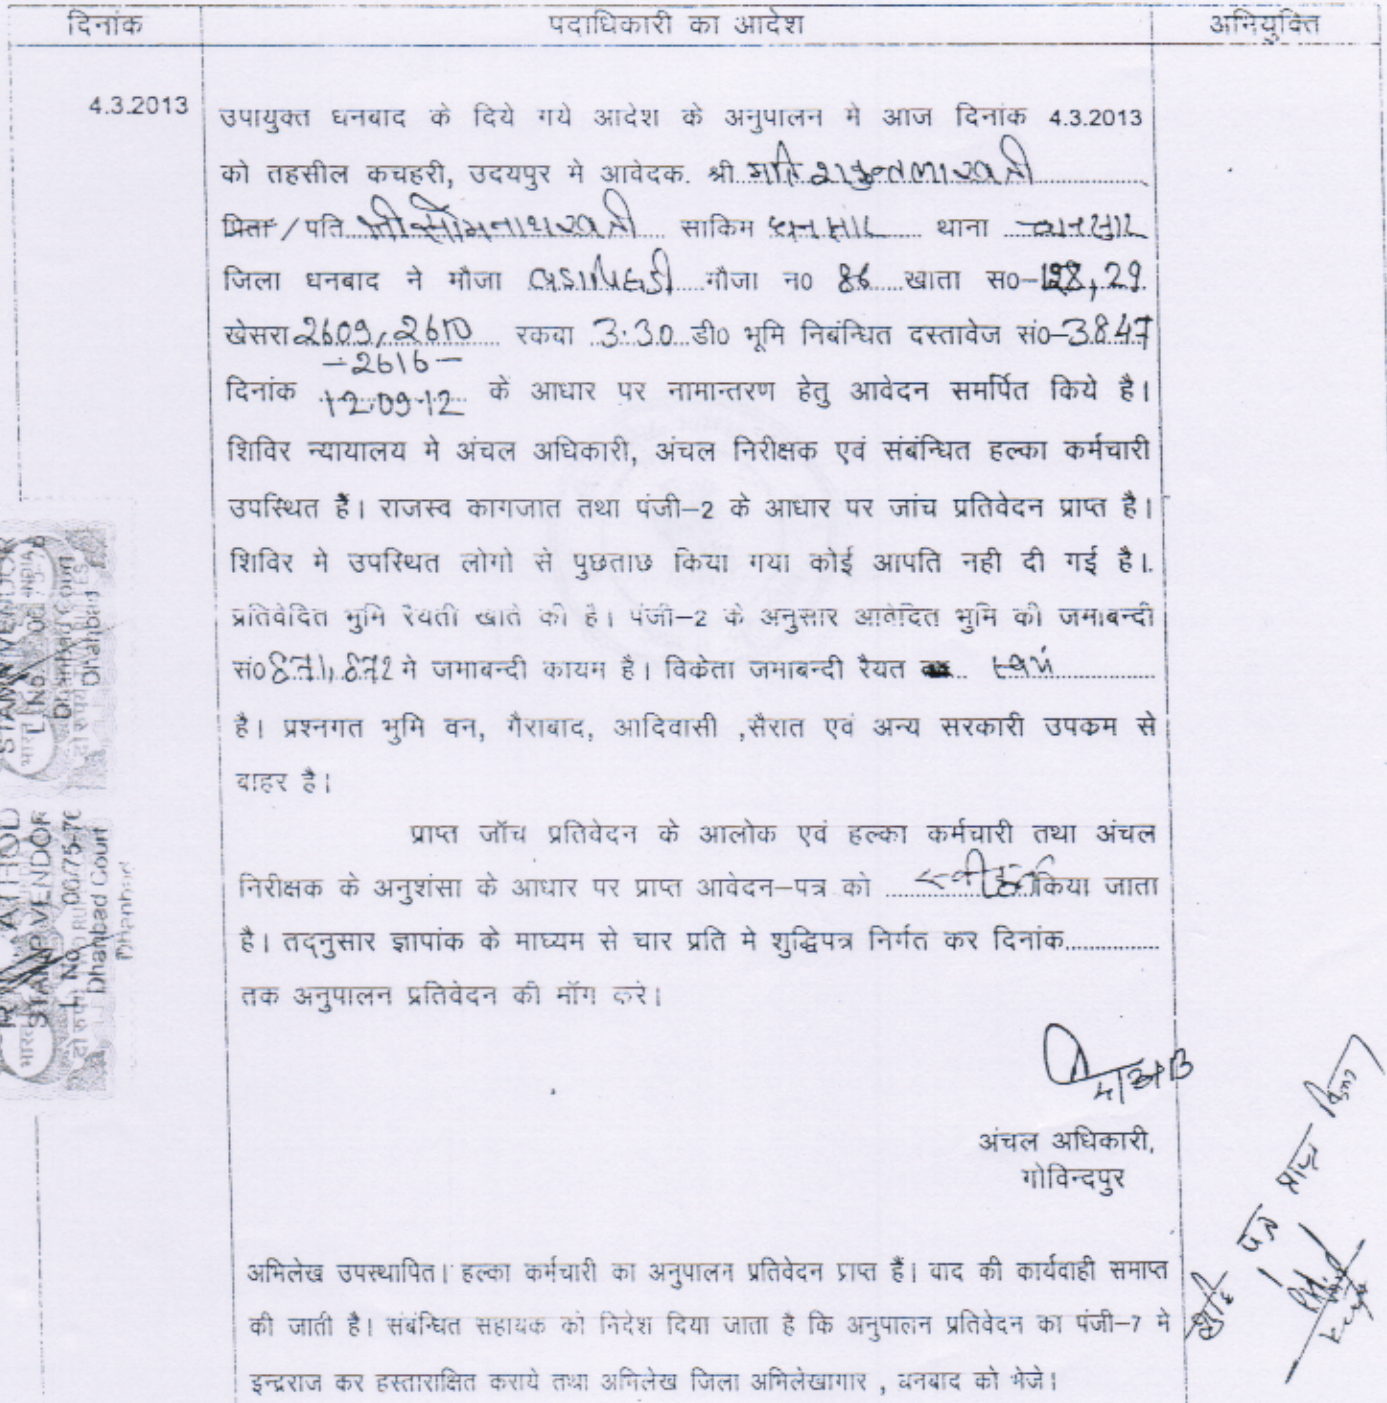 दिनांक पदाधिकारी का आदेश अभियुक्ति
4.3.2013 उपायुक्त धनबाद के दिये गये आदेश के अनुपालन मे आज दिनांक 4.3.2013
को तहसील कचहरी, उदयपुर मे आवेदक. श्री मति शकुन्तला खत्री
पिता / पति श्री सोमनाथ खत्री साकिम धनसार थाना धनसार
जिला धनबाद ने मौजा मौजा न0 86 खाता स0-128, 29
खेसरा 2609, 2610 रकवा 3.30 डी0 भूमि निबंन्धित दस्तावेज सं0-3847
-2616-
दिनांक 12.09.12 के आधार पर नामान्तरण हेतु आवेदन समर्पित किये है।
शिविर न्यायालय मे अंचल अधिकारी, अंचल निरीक्षक एवं संबंन्धित हल्का कर्मचारी
उपस्थित हैं। राजस्व कागजात तथा पंजी-2 के आधार पर जांच प्रतिवेदन प्राप्त है।
शिविर मे उपस्थित लोगो से पुछताछ किया गया कोई आपति नही दी गई है।
प्रतिवेदित भुमि रैयती खाते की है। पंजी-2 के अनुसार आवेदित भुमि की जमाबन्दी
सं0 871, 872 मे जमाबन्दी कायम है। विकेता जमाबन्दी रैयत स्वयं
है। प्रश्नगत भुमि वन, गैराबाद, आदिवासी ,सैरात एवं अन्य सरकारी उपकम से
बाहर है।
प्राप्त जॉच प्रतिवेदन के आलोक एवं हल्का कर्मचारी तथा अंचल
निरीक्षक के अनुशंसा के आधार पर प्राप्त आवेदन-पत्र को स्वीकृत किया जाता
है। तद्नुसार ज्ञापांक के माघ्यम से चार प्रति मे शुद्धिपत्र निर्गत कर दिनांक
तक अनुपालन प्रतिवेदन की मॉग करे।
4/3/13
अंचल अधिकारी,
गोविन्दपुर
अभिलेख उपस्थापित। हल्का कर्मचारी का अनुपालन प्रतिवेदन प्राप्त हैं। वाद की कार्यवाही समाप्त
की जाती है। संबंन्धित सहायक को निदेश दिया जाता है कि अनुपालन प्रतिवेदन का पंजी-7 मे
इन्द्रराज कर हस्ताराक्षित कराये तथा अभिलेख जिला अभिलेखागार , धनबाद को भेजे।
शुद्धि पत्र प्राप्त किया
STAMP VENDOR
Dhanbad Court
Dhanbad
STAMP VENDOR
L No. 00/75-76
Dhanbad Court
Dhanbad